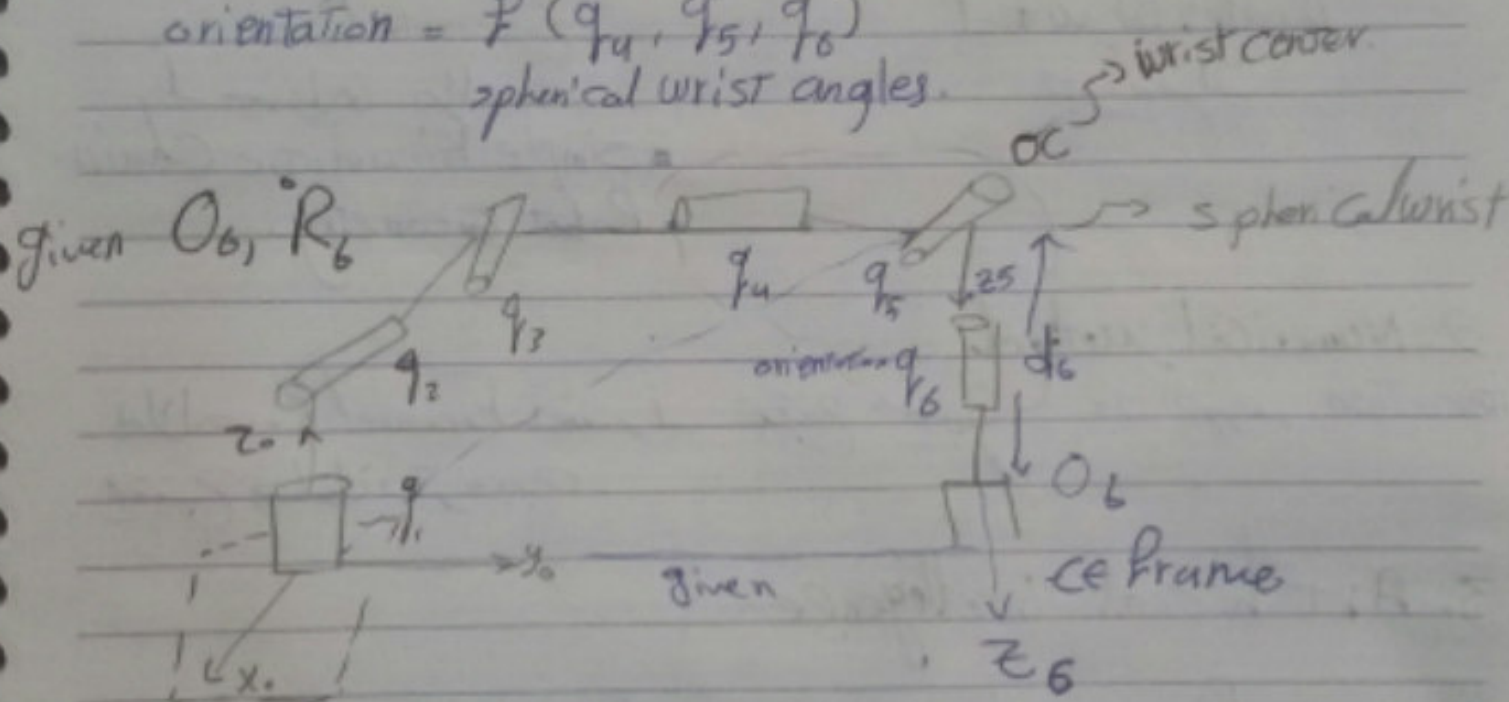 orientation = F (q4, q5, q6)
spherical wrist angles.
wrist center
OC
given O6, °R6
spherical wrist
q4
q5
z5
q3
q2
orientation q6
d6
z0
q1
O6
y0
given
ce frame
x0
z6